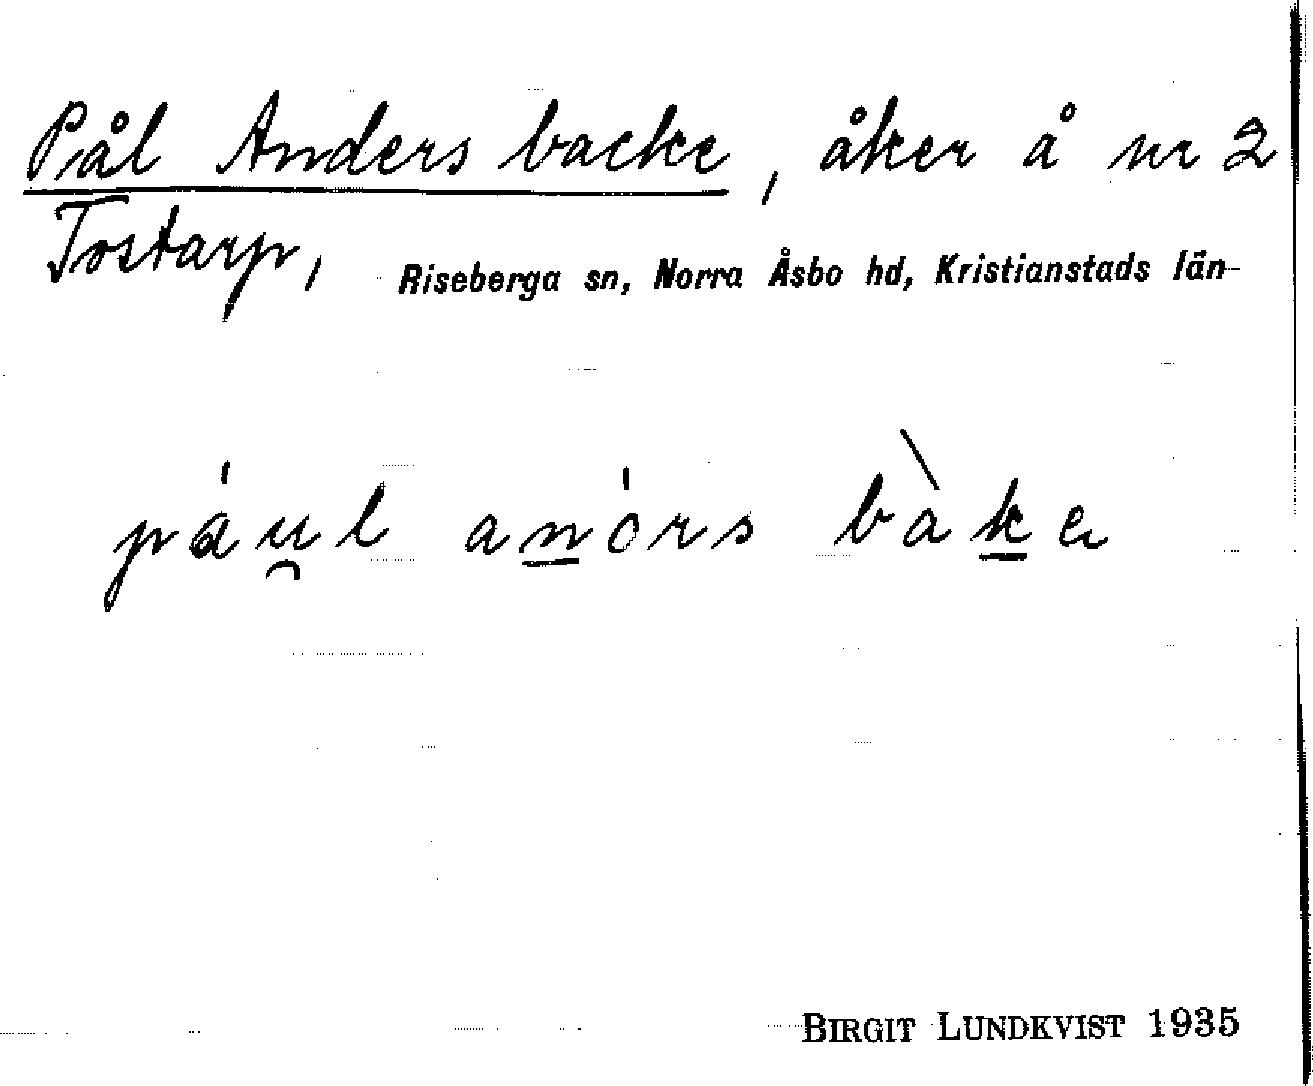 Pål Anders backe, åker å nr 2
Tostarp, Riseberga sn, Norra Åsbo hd, Kristianstads län
páu̯l an̲órs bàk̲ə
BIRGIT LUNDKVIST 1935